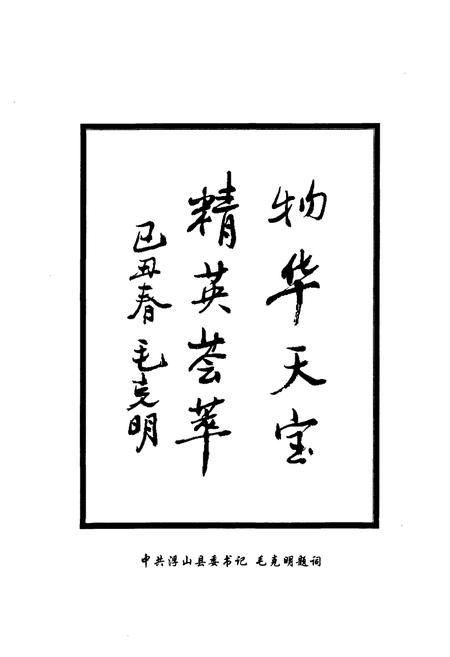 物华天宝
精英荟萃
己丑春 毛克明
中共浮山县委书记 毛克明题词